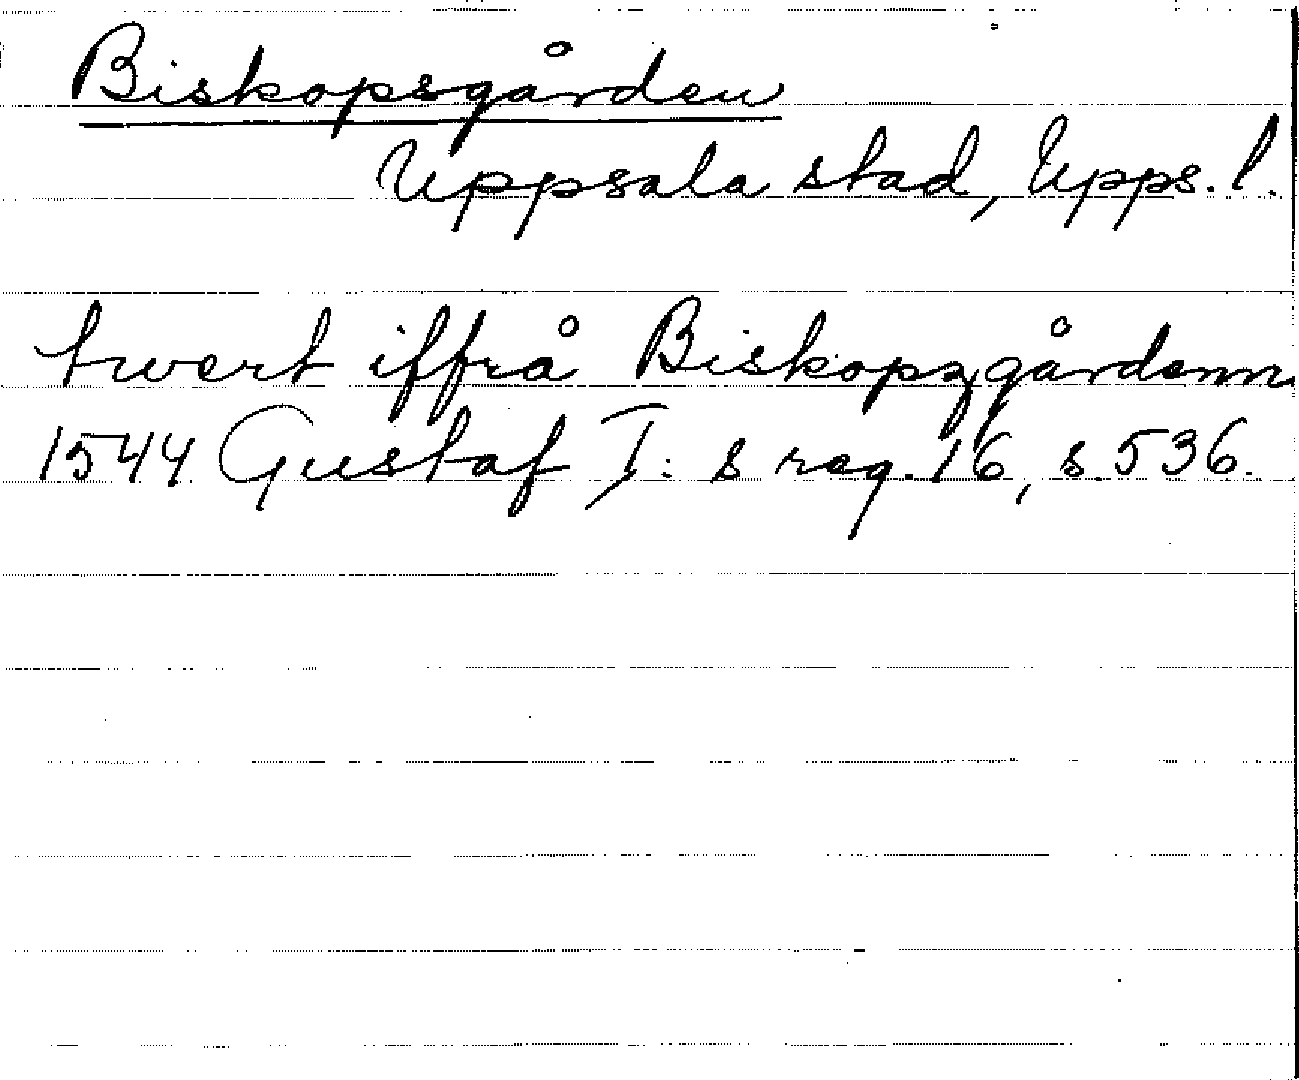 Biskopsgården
Uppsala stad, Upps. l.
twert iffrå Biskopzgårdenn
1544 Gustaf I: s reg. 16, s. 536.